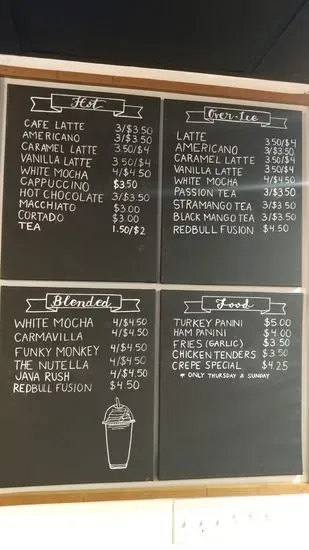 Hot
CAFE LATTE 3/$3.50
AMERICANO 3/$3.50
CARAMEL LATTE 3.50/$4
VANILLA LATTE 3.50/$4
WHITE MOCHA 4/$4.50
CAPPUCCINO $3.50
HOT CHOCOLATE 3/$3.50
MACCHIATO $3.00
CORTADO $3.00
TEA 1.50/$2
Over-Ice
LATTE 3.50/$4
AMERICANO 3/$3.50
CARAMEL LATTE 3.50/$4
VANILLA LATTE 3.50/$4
WHITE MOCHA 4/$4.50
PASSION TEA 3/$3.50
STRAMANGO TEA 3/$3.50
BLACK MANGO TEA 3/$3.50
REDBULL FUSION $4.50
Blended
WHITE MOCHA 4/$4.50
CARMAVILLA 4/$4.50
FUNKY MONKEY 4/$4.50
THE NUTELLA 4/$4.50
JAVA RUSH 4/$4.50
REDBULL FUSION $4.50
Food
TURKEY PANINI $5.00
HAM PANINI $4.00
FRIES (GARLIC) $3.50
CHICKEN TENDERS $3.50
CREPE SPECIAL $4.25
* ONLY THURSDAY & SUNDAY